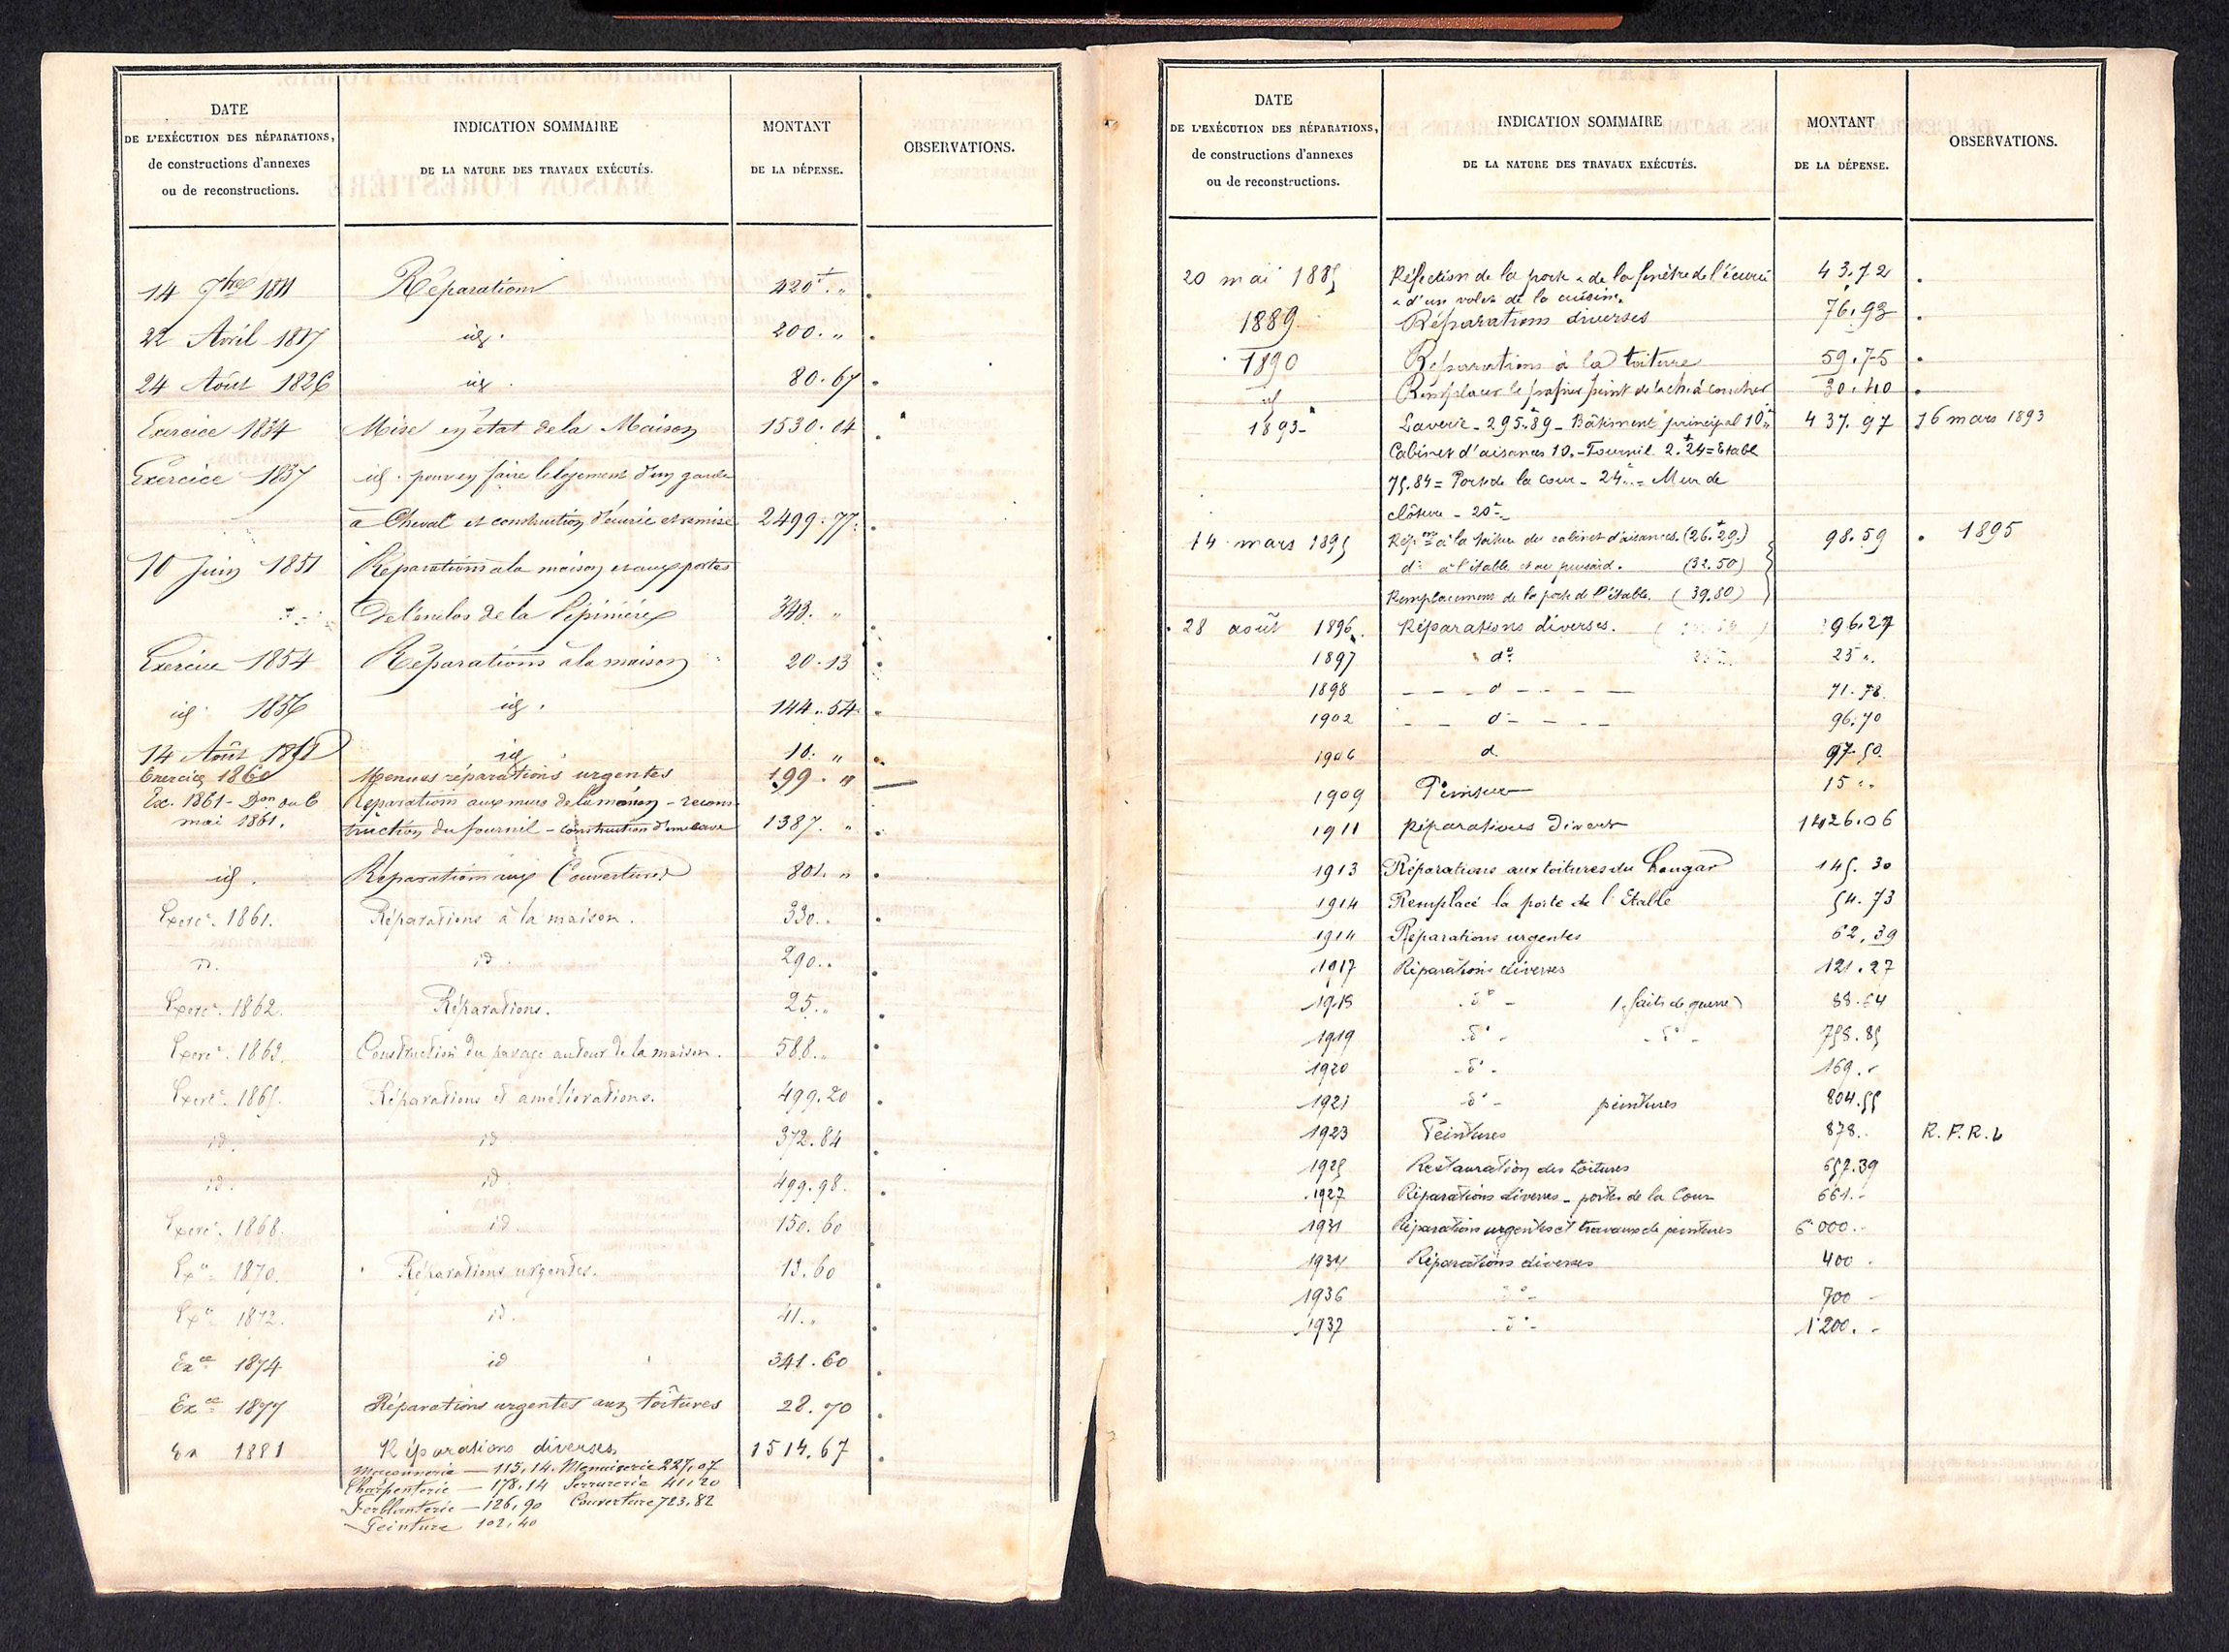 DATE
DE L'EXÉCUTION DES RÉPARATIONS,
de constructions d'annexes
ou de reconstructions.
INDICATION SOMMAIRE
DE LA NATURE DES TRAVAUX EXÉCUTÉS.
MONTANT
DE LA DÉPENSE.
OBSERVATIONS.
14 7bre 1811 Réparations 420f. "
22 Avril 1817 id. 200. "
24 Août 1826 id. 80.67
Exercice 1834 Mise en état de la Maison 1530.04
Exercice 1837 id. pour en faire le logement d'un garde
à Cheval et construction d'écurie et remise 2499.77
10 Juin 1851 Réparations à la maison et aux portes
De l'enclos de la Pépinière 343. "
Exercice 1854 Réparations à la maison 20.13
id. 1856 id. 144.54
14 Août id. 10. "
Exercice 1860 Menues réparations urgentes 199. "
Ex. 1861 - Don du 6 Réparations aux murs de la maison - recons
mai 1861. truction du fournil - construction d'une cave 1387. "
id. Réparations aux Couvertures 802. "
Exerce. 1861. Réparations à la maison. 330..
id. id. 290..
Exerce. 1862. Réparations. 25..
Exerce. 1863. Construction du pavage autour de la maison. 588..
Exerce. 1865. Réparations et améliorations. 499.20
id. id. 372.84
id. id. 499.98.
Exerce. 1868. id. 150.60
Exce 1870. Réparations urgentes. 13.60
Exce 1872. id. 41..
Exce 1874. id 341.60
Exce 1877 Réparations urgentes aux toitures 28.70
Ex 1881 Réparations diverses 1514.67
Maçonnerie — 115,14. Menuiserie 227,07
Charpenterie — 178,14 Serrurerie 41,20
Ferblanterie — 126,90 Couverture 723,82
Peinture 102,40
DATE
DE L'EXÉCUTION DES RÉPARATIONS,
de constructions d'annexes
ou de reconstructions.
INDICATION SOMMAIRE
DE LA NATURE DES TRAVAUX EXÉCUTÉS.
MONTANT
DE LA DÉPENSE.
OBSERVATIONS.
20 mai 1885 Réfection de la porte & de la fenêtre de l'écurie 43.72
& d'un volet de la cuisine.
1889. Réparations diverses 76,93
1890 Réparations à la toiture 59.75
id Remplacer le papier peint de la ch. à coucher 30.40
1893 - Laverie - 295.89 - Bâtiment principal 10 " 437.97 16 mars 1893
Cabinet d'aisances 10. - Fournil 2.24 = Etable
75.84 = Porte de la cour - 24.. - Mur de
clôture - 20 -
14 mars 1895 Rép.on à la toiture du cabinet d'aisances. (26.29) 98.59 1895
do à l'étable et au puisard. (32.50)
Remplacement de la porte de l'étable. (39.80)
28 août 1896. Réparations diverses. 96.27
1897 do 25 ".
1898 - - - d - - - - 71.78
1902 - - d - - - - 96.70
1906 d. 97.50
1909 Peinture 15 ..
1911 Réparations diverses 1426.06
1913 Réparations aux toitures du hangar 145.30
1914 Remplacé la porte de l'Etable 54.73
1914 Réparations urgentes 62,39
1917 Réparations diverses 121.27
1918 - do - (faits de guerre) 88.64
1919 - do - - do - 758.85
1920 - do - 169. -
1921 - do - peintures 804.55
1923 Peintures 878.. R.F.R.L
1925 Restauration des toitures 657.39
1927 Réparations diverses - portes de la Cour 661. -
1931 Réparations urgentes et travaux de peintures 6000. -
1934 Réparations diverses 400 -
1936 - do - 700 -
1937 - do - 1200. -